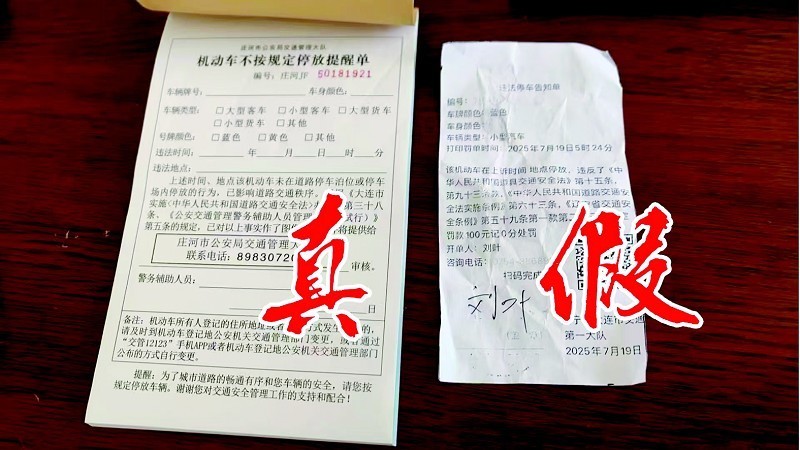 庄河市公安局交通管理大队
机动车不按规定停放提醒单
编号：庄河JF 50181921
车辆牌号： 车身颜色：
车辆类型： □大型客车 □小型客车 □大型货车
□小型货车 □其他
号牌颜色： □蓝色 □黄色 □其他
违法时间： 年 月 日 时 分
违法地点：
上述时间、地点该机动车未在道路停车泊位或停车
场内停放的行为，已影响道路交通秩序。
《大连市
实施〈中华人民共和国道路交通安全法〉
第三十八
条、《公安交通管理警务辅助人员管理
试行）》
第五条的规定，已对以上事实作了图
将提供给
庄河市公安局交通管理大
联系电话：8983072
审核。
警务辅助人员：
日
备注：机动车所有人登记的住所地址或者
方式发生
的，
请及时到机动车登记地公安机关交通管理部门变更，或
通过
“交管12123”手机APP或者机动车登记地公安机关交通管理部门
公布的方式自行变更。
提醒：为了城市道路的畅通有序和您车辆的安全，请您按
规定停放车辆。谢谢您对交通安全管理工作的支持和配合！
真
违法停车告知单
编号：
车牌颜色：蓝色
车身颜色：
车辆类型：小型汽车
打印罚单时间：2025年7月19日5时24分
该机动车在上诉时间 地点停放，违反了《中
华人民共和国道具交通安全法》第十五条、
第九十三条、《中华人民共和国道路交通安
全法实施条例》第六十三条、《辽宁省交通安
全条例》第五十九条第一款第二
罚款100元记0分处罚
开单人：刘叶
咨询电话：
扫码完成
刘叶
宁
大连市交通
第一大队
2025年7月19日
假